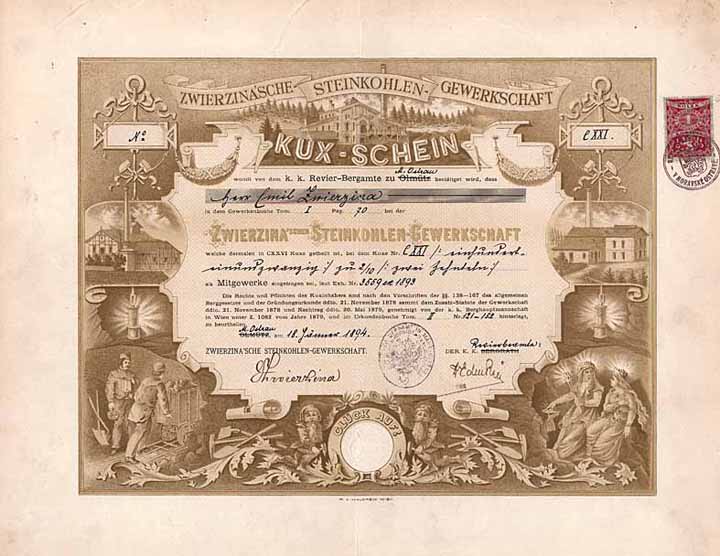 ZWIERZINA'SCHE STEINKOHLEN-GEWERKSCHAFT
KUX-SCHEIN
No CXXI.
womit von dem k. k. Revier-Bergamte zu M. Ostrau Olmütz bestätiget wird, dass
Herr Emil Zwierzina
in dem Gewerkenbuche Tom. I Pag. 70 bei der
ZWIERZINA'SCHEN STEINKOHLEN-GEWERKSCHAFT
welche dermalen in CXXVI Kuxe getheilt ist, bei dem Kuxe Nr. CXXI /: einhundert
einundzwanzig :/ zu 2/10 /: zwei Zehnteln :/
als Mitgewerke eingetragen sei, laut Exh. Nr. 3559 ex 1893
Die Rechte und Pflichten des Kuxinhabers sind nach den Vorschriften der §§. 138—167 des allgemeinen
Berggesetzes und der Gründungsurkunde ddto. 21. November 1878 sammt dem Zusatz-Statute der Gewerkschaft
ddto. 21. November 1878 und Nachtrag ddto. 20. Mai 1879, genehmigt von der k. k. Berghauptmannschaft
in Wien unter Z. 1082 vom Jahre 1879, und im Urkundenbuche Tom. I Nr. 121-122 hinterlegt,
zu beurtheilen.
M. Ostrau OLMÜTZ am 18. Jänner 1894.
ZWIERZINA'SCHE STEINKOHLEN-GEWERKSCHAFT.
Revierbeamte:
DER K. K. BERGRATH
Zwierzina
GLÜCK AUF!
KOLEK
1